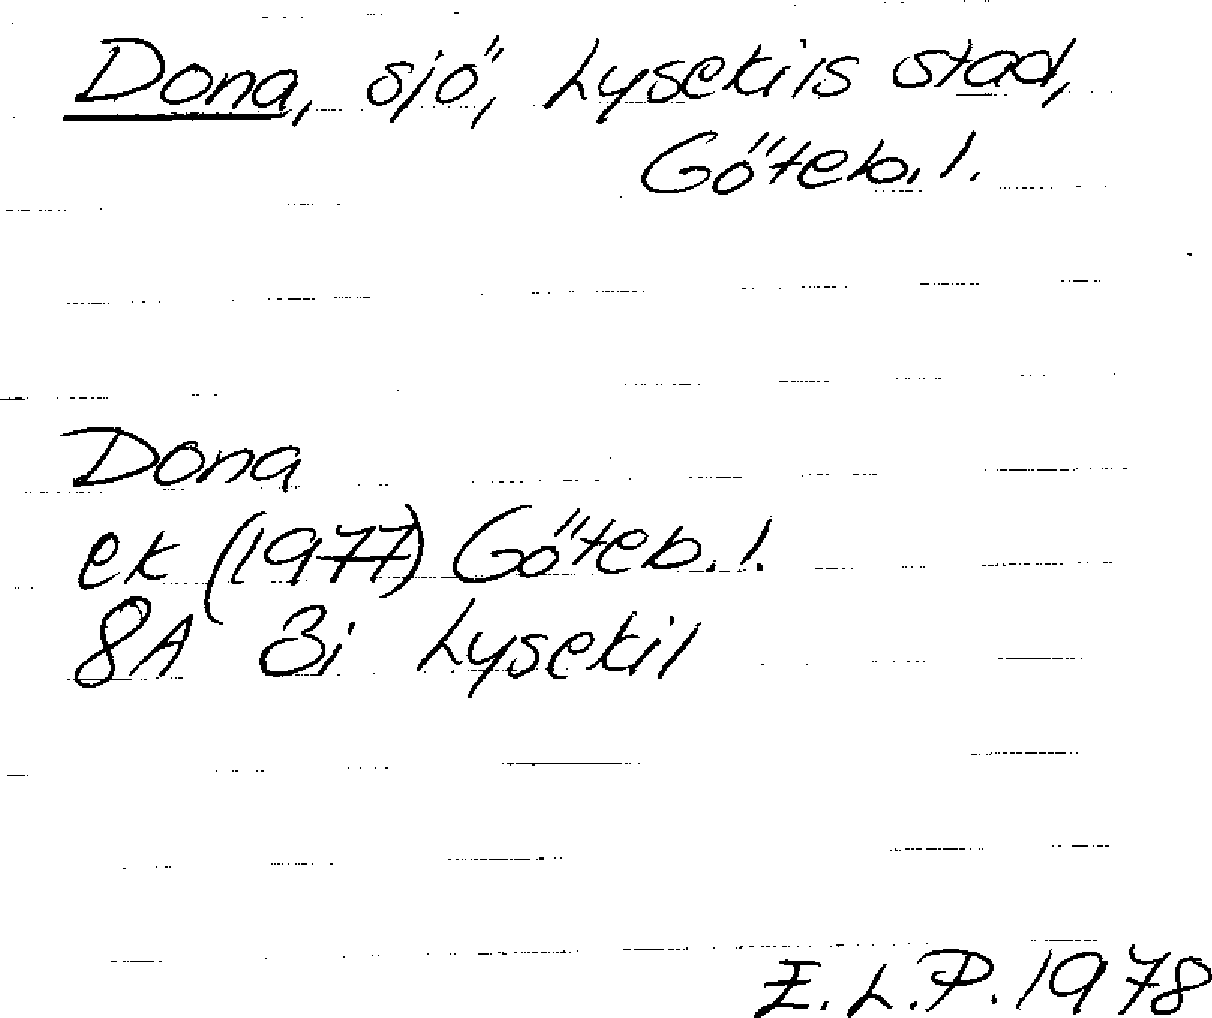 Dona, sjö, Lysekils stad,
Göteb. l.
Dona
ek (1977) Göteb. l.
8A 3i Lysekil
E. L. P. 1978